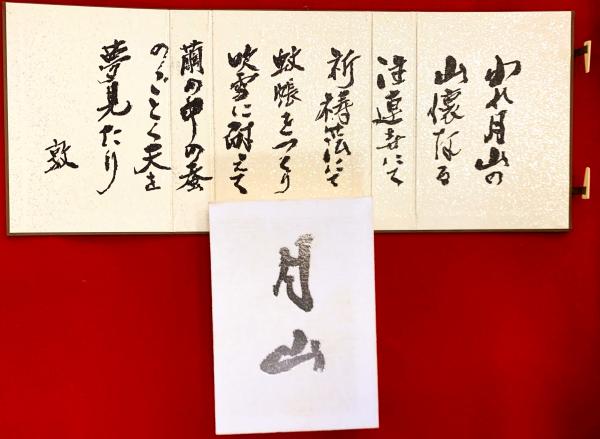 われ月山の
山懐なる
注連寺にて
祈祷簿にて
蚊帳をつくり
吹雪に耐えて
繭の中の蚕
のごとく天を
夢見たり
敦
月山